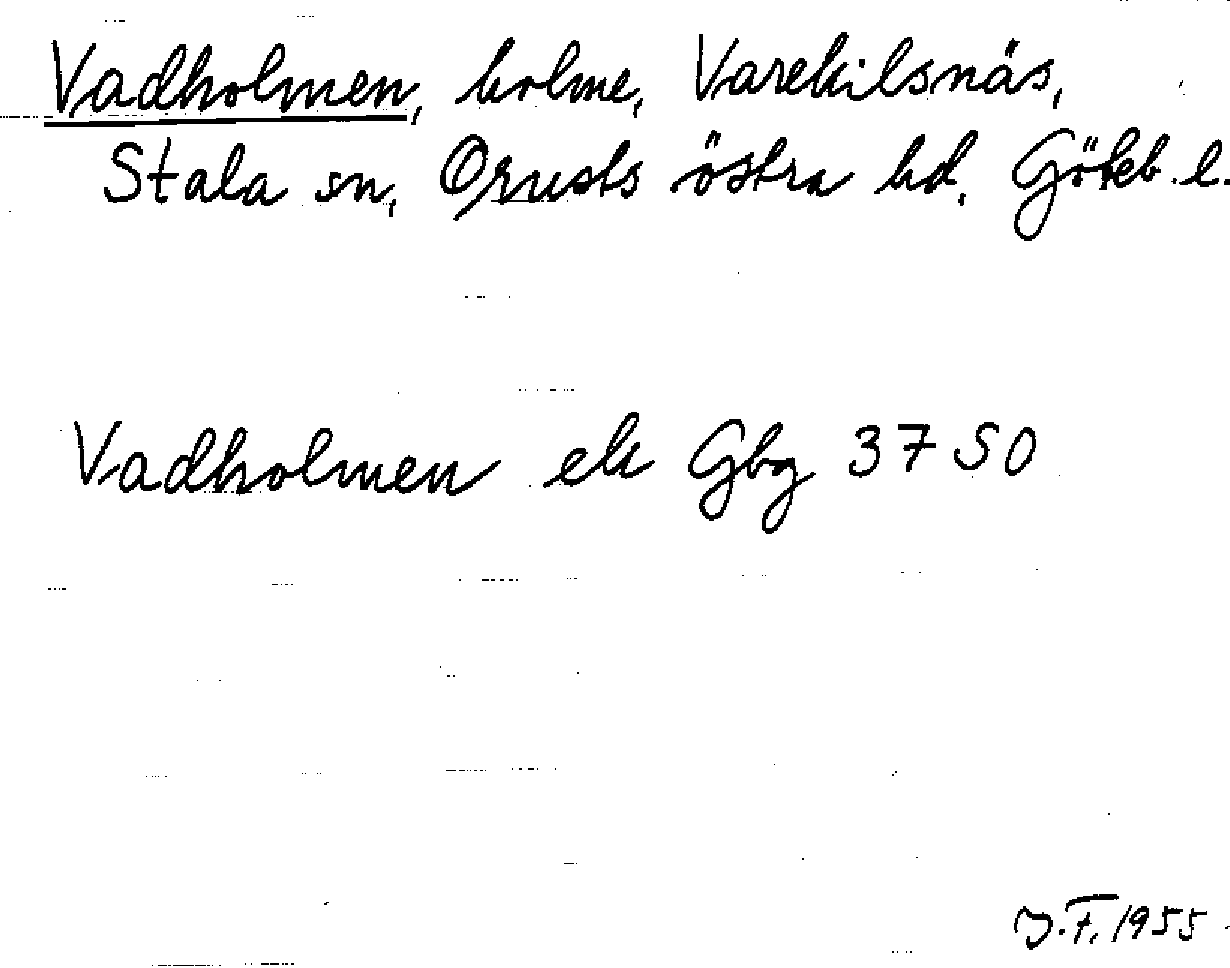 Vadholmen, holme, Varekilsnäs,
Stala sn, Orusts östra hd, Göteb. l.
Vadholmen ek Gbg 37 50
J.F. 1955